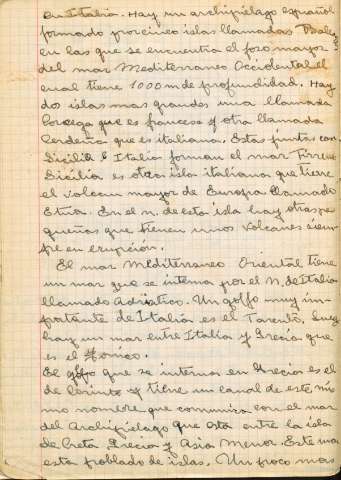 en Italia. Hay un archipielago español
formado por cinco islas llamadas
en las que se encuentra el foso mayor
del mar Mediterraneo Occidental el
cual tiene 1000 m de profundidad. Hay
dos islas mas grandes una llamada
Corcega que es francesa y otra llamada
Cerdeña que es italiana. Estas juntas con
Sicilia e Italia forman el mar Tirreno
Sicilia es otra isla italiana que tiene
el volcan mayor de Europa llamado
Etna. En el n. de esta isla hay otras pe
queñas que tienen unos volcanes siem
pre en erupción.
El mar Mediterraneo Oriental tiene
un mar que se interna por el N. de Italia
llamado Adriatico. Un golfo muy im-
portante de Italia es el Tarento, luego
hay un mar entre Italia y Grecia que
es el Jonico.
El golfo que se interna en Grecia es el
de Corinto y tiene un canal de este mis
mo nombre que comunica con el mar
del Archipielago que esta entre la isla
de Creta Grecia y Asia Menor. Este mar
esta poblado de islas. Un poco mas